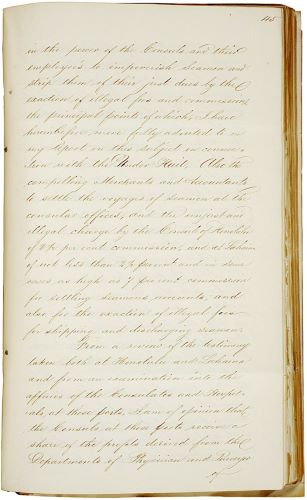 145
in the power of the Consuls and their
employees to impoverish Seamen and
strip them of their just dues by the
exaction of illegal fees and commissions
the principal points of which, I have
heretofore more fully adverted to in
my report on this subject in connec-
tion with the Under Hail, Also the
compelling Merchants and Accountants
to settle the voyages of seamen at the
consular offices, and the unjust and
illegal charge by the Consul of Honolulu
of 2½ per cent commission, and at Lahaina
of not less than 2½ per cent and in some
cases as high as 7 per cent commission
for settling seamens accounts, and
also for the exaction of illegal fees
for shipping and discharging seamen.
From a review of the testimony
taken both at Honolulu and Lahaina
and from an examination into the
affairs of the Consulates and Hospit-
als, at those ports, I am of opinion that
the Consuls at those ports receive a
share of the profits derived from the
Departments of Physician and Purveyor
of